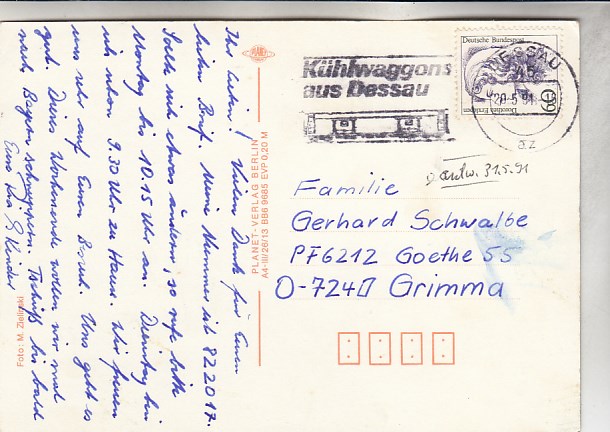 Ihr Lieben! Vielen Dank für Euren
lieben Brief. Meine Nummer ist 822017.
Sollte sich etwas ändern, so rufe bitte
Montag bis 10.15 Uhr an. Dienstag bin
ich schon 9.30 Uhr zu Haus. Wir freuen
uns sehr auf Euren Besuch. Uns geht es
gut. Dieses Wochenende wollen wir mal
nach Bayern schnuppern. Tschüß bis bald
Eure
Kinder
Foto: M. Zielinski
PLANET
PLANET-VERLAG BERLIN
A4-III/26/13 BB6 9685 EVP 0,20 M
Kühlwaggons
aus Dessau
Deutsche Bundespost
DESSAU
20-5.91
az
Dorothea Erxleben
antw. 31.5.91
Familie
Gerhard Schwalbe
PF6212 Goethe 55
O-7240 Grimma